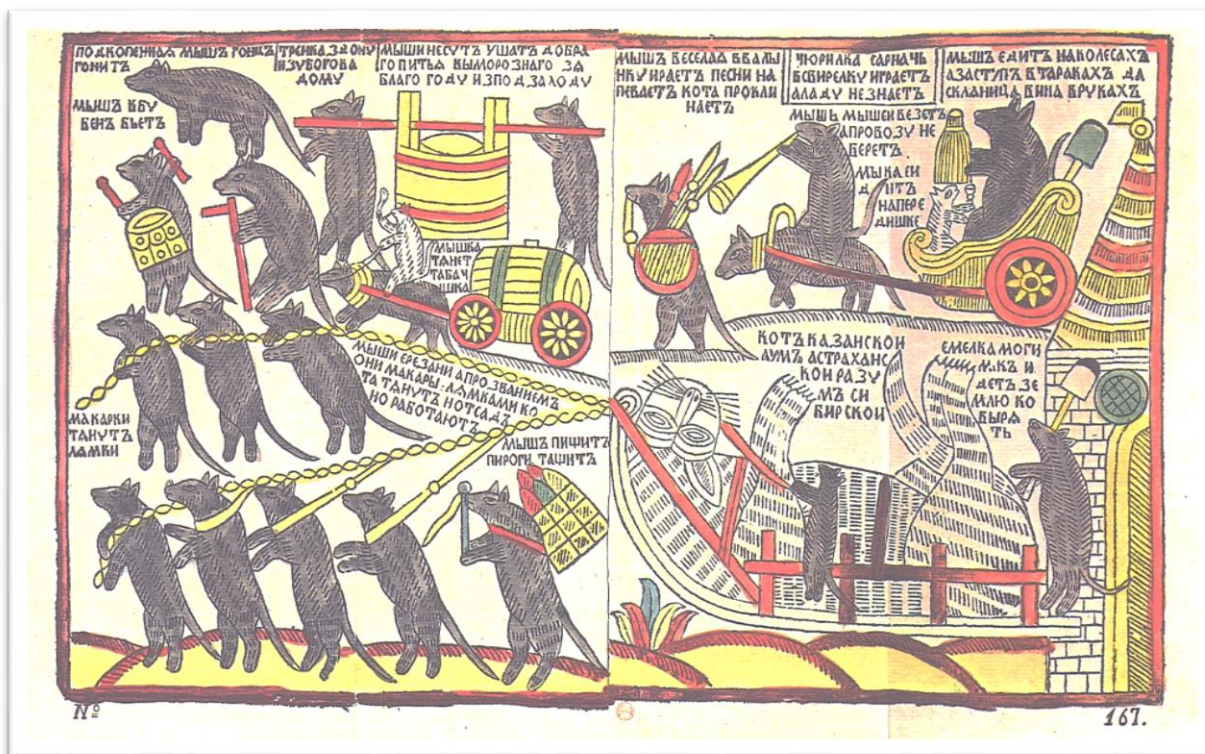 ПОДКОПЕННАЯ МЫШЪ ГОНЕЦЪ
ГОНИТЪ
ТРЕНКА З ДОНУ
ИЗУБОГОВА
ДОМУ
МЫШИ НЕСУТЪ УШАТЪ ДОБРА
ГО ПИТЬЯ ВЫМОРОЗНАГО ЗЯ
БЛАГО ГОДУ ИЗПОД ЗАЛОДУ
МЫШЪ ВБУ
БЕНЪ БЬЕТЪ
МЫШКА
ТЯНЕТ
ТАБАЧ
ИШКА
МЫШИ ЕРЕЗАНИ АПРОЗВАНИЕМЪ
ОНИ МАКАРЫ ЛЯМКАМИ КО
ТА ТЯНУТЪ И ОТСАДЪ
НО РАБОТАЮТЪ
МАКАРКИ
ТАНУТЪ
ЛЯМКИ
МЫШЪ ПИЩИТЪ
ПИРОГИ ТАЩИТЪ
МЫШЪ ВЕСЕЛАЯ ВВАЛЫ
НКУ ИРАЕТЪ ПЕСНИ НА
ПЕВАЕТЪ КОТА ПРОКЛИ
НАЕТЪ
ЧЮРИЛКА САРНАЧЬ
ВСВИРЕЛКУ ИГРАЕТЪ
АЛАДУ НЕЗНАЕТЪ
МЫШЪ ЕДИТЪ НАКОЛЕСАХЪ
АЗАСТУПЪ ВТАРАКАХЪ ДА
СКЛАНИЦА ВИНА ВРУКАХЪ
МЫШЬ МЫШЕИ ВЕЗЕТЪ
АПРОВОЗУ НЕ
БЕРЕТЪ
МЫКА СИ
ДИТЪ
НАПЕРЕ
ДИШКЕ
КОТЪ КАЗАНСКОИ
АУМЪ АСТРАХАНС
КОИ РАЗУ
МЪ СИ
БИРСКОИ
ЕМЕЛКА МОГИ
ЛЯКЪ И
ДЕТЪ ЗЕ
МЛЮ КО
ВЫРЯ
ТЬ
№
167.